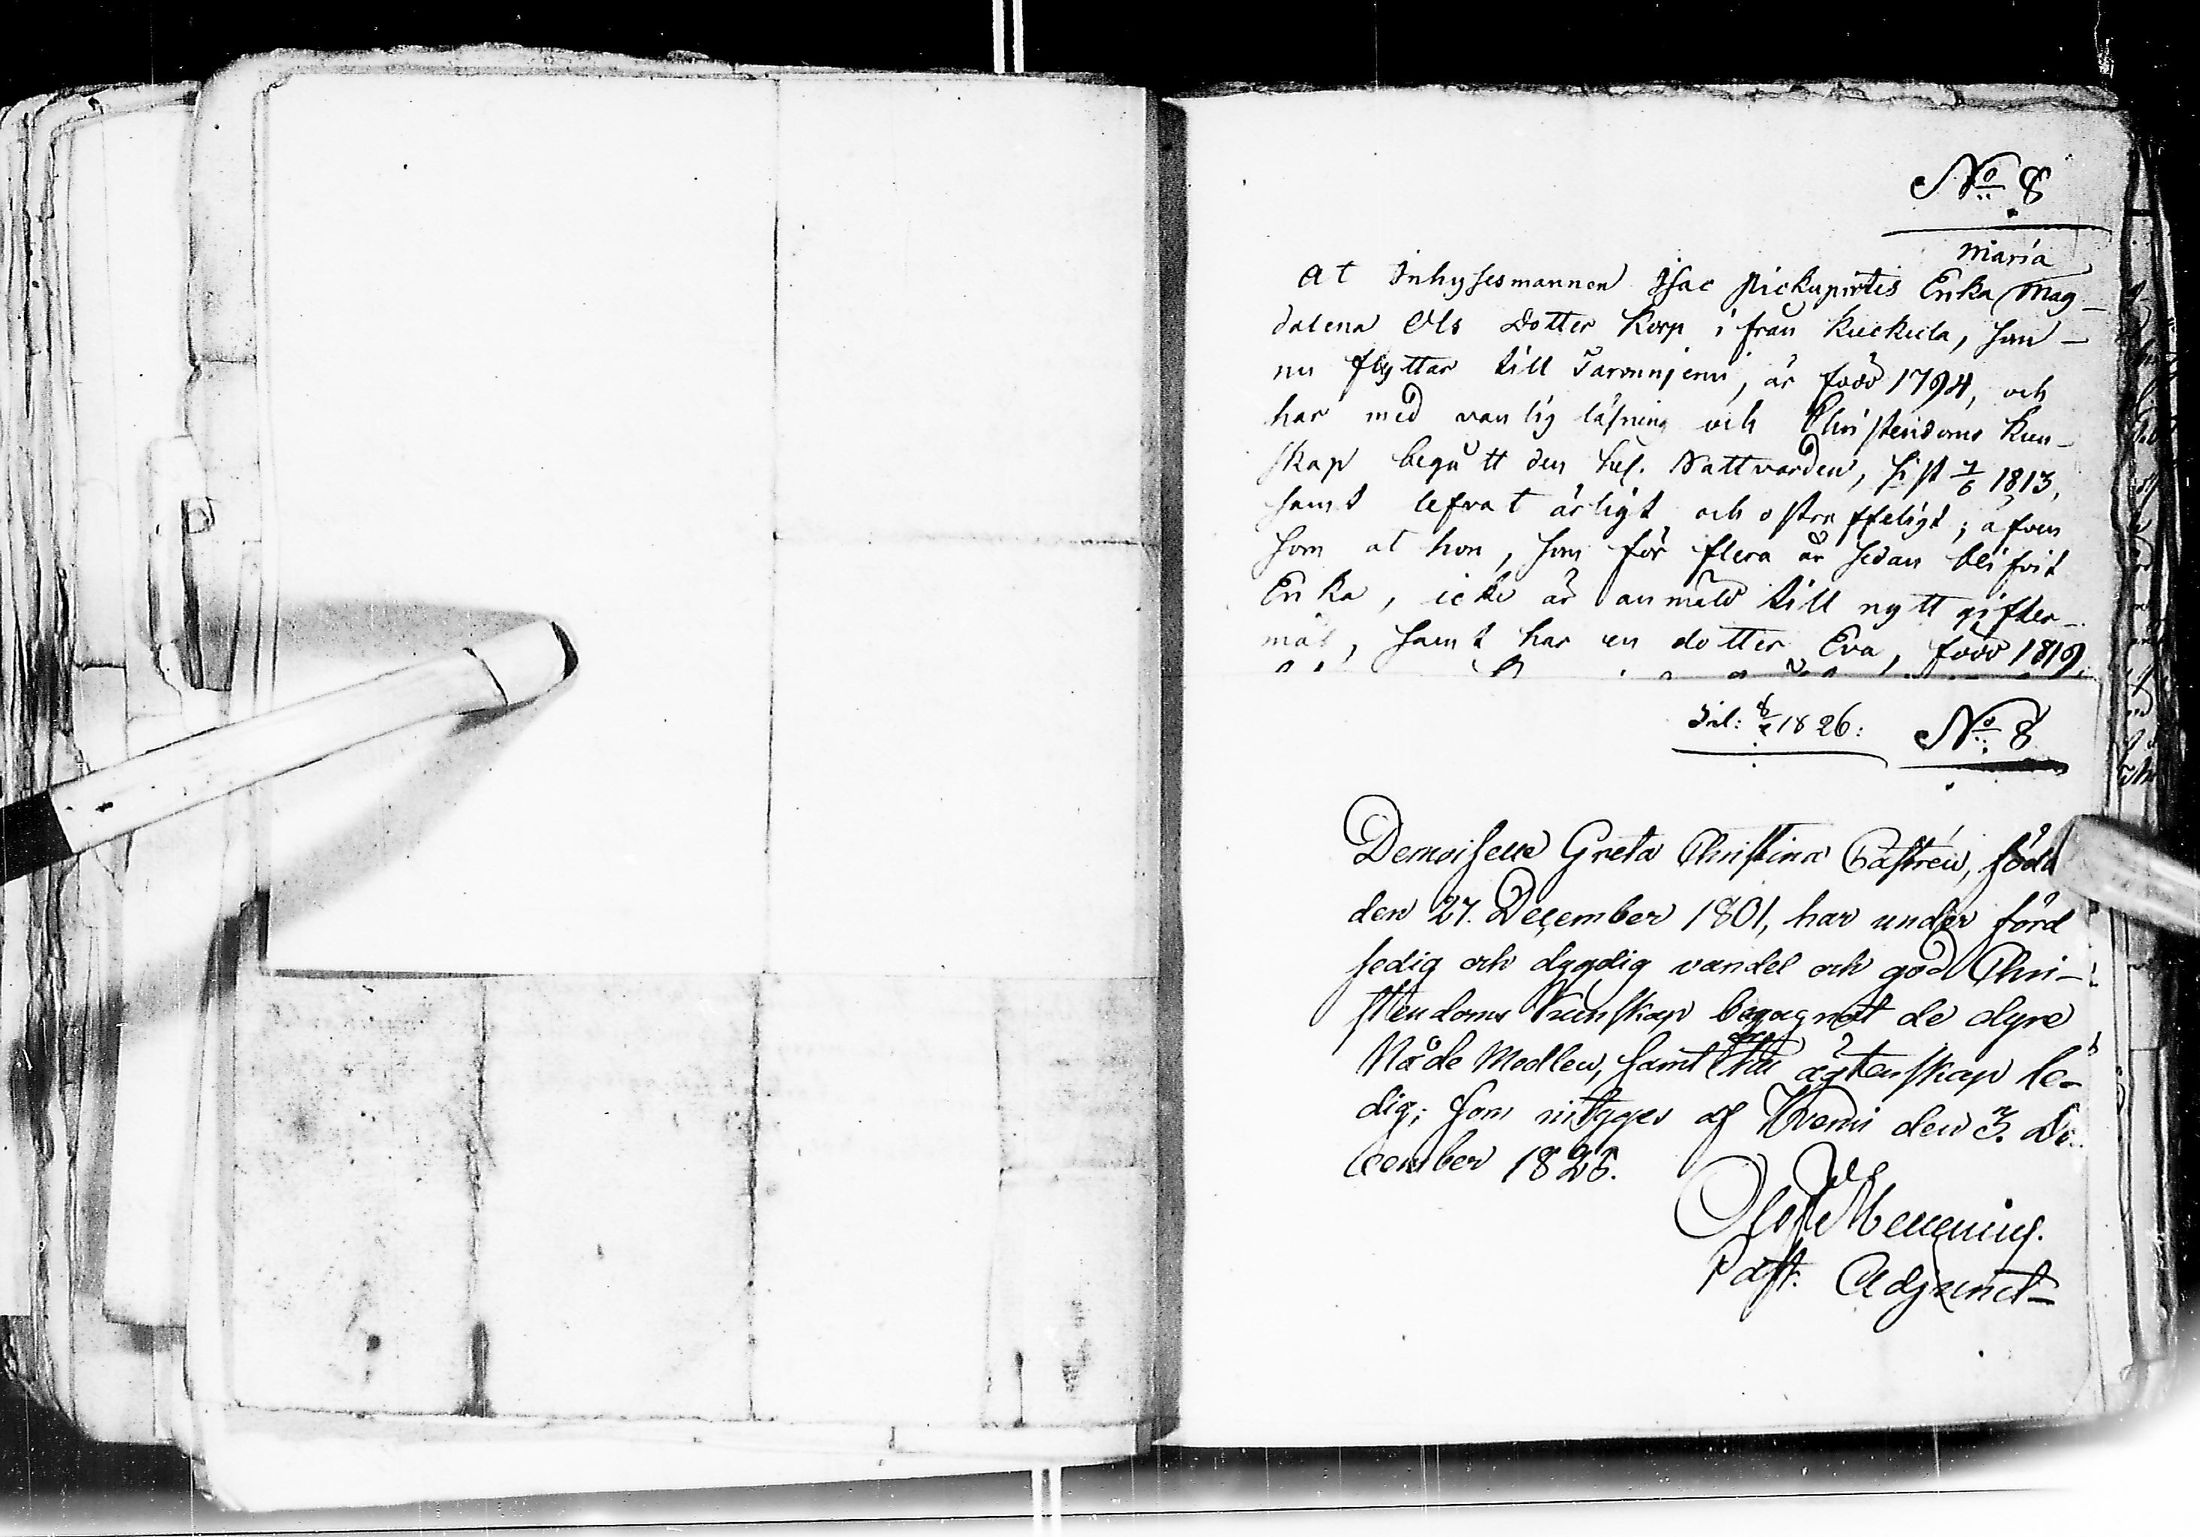 No 8
Maria
At Inhysesmannen Isac Pickupirtis Enka Mag-
dalena Ols Dotter Korp ifrån Kuckula, som
nu flyttar till Tarvanjemi, är född 1794, och
har med vanlig läsning och Christendoms kun-
skap begått den hel. Nattvarden, sist 7/6 1813,
samt lefvat ärligt och ostraffeligt; äfven
som at hon, som för flera år sedan blifvit
Enka, icke är anmäld till nytt gifter-
mål, samt har en dotter Eva, född 1819,
1826: No 8
Demoiselle Greta Christina Castrén, född
den 27. December 1801, har under förd
sedig och dygdig vandel och god Chri-
stendoms kunskap begagnat de dyre
Nåde Medlen, samt till ägtenskap le-
dig; som intygges af Kemi den 3. De-
cember 1825.
Olof
Past. Adjunct